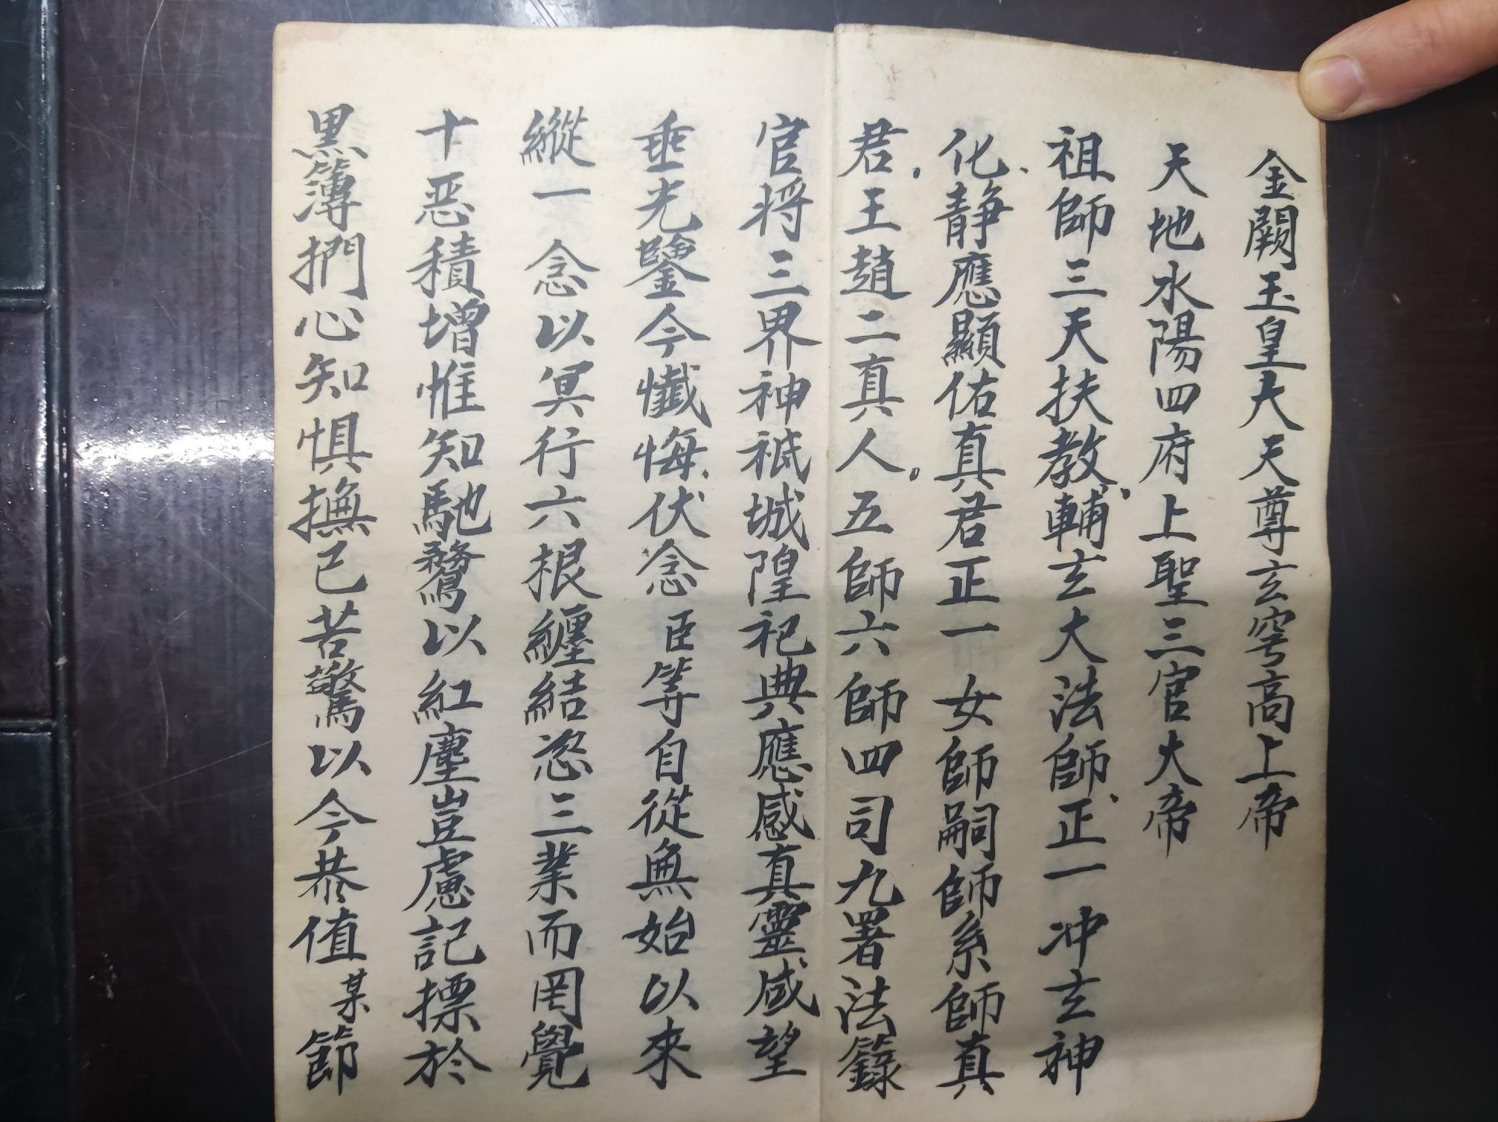 金闕玉皇大天尊玄穹高上帝
天地水陽四府上聖三官大帝
祖師三天扶教、輔玄大法師、正一冲玄神
化、静應顯佑真君正一女師嗣師系師真
君、王趙二真人。五師六師四司九署法籙
官将三界神祇城隍祀典應感真靈咸望
垂光鑒今懺悔、伏念臣等自從無始以來
縱一念以冥行六根纏結恣三業而罔覺
十惡積增惟知馳騖以紅塵豈慮記標於
黒簿捫心知惧撫己若驚以今恭值某節